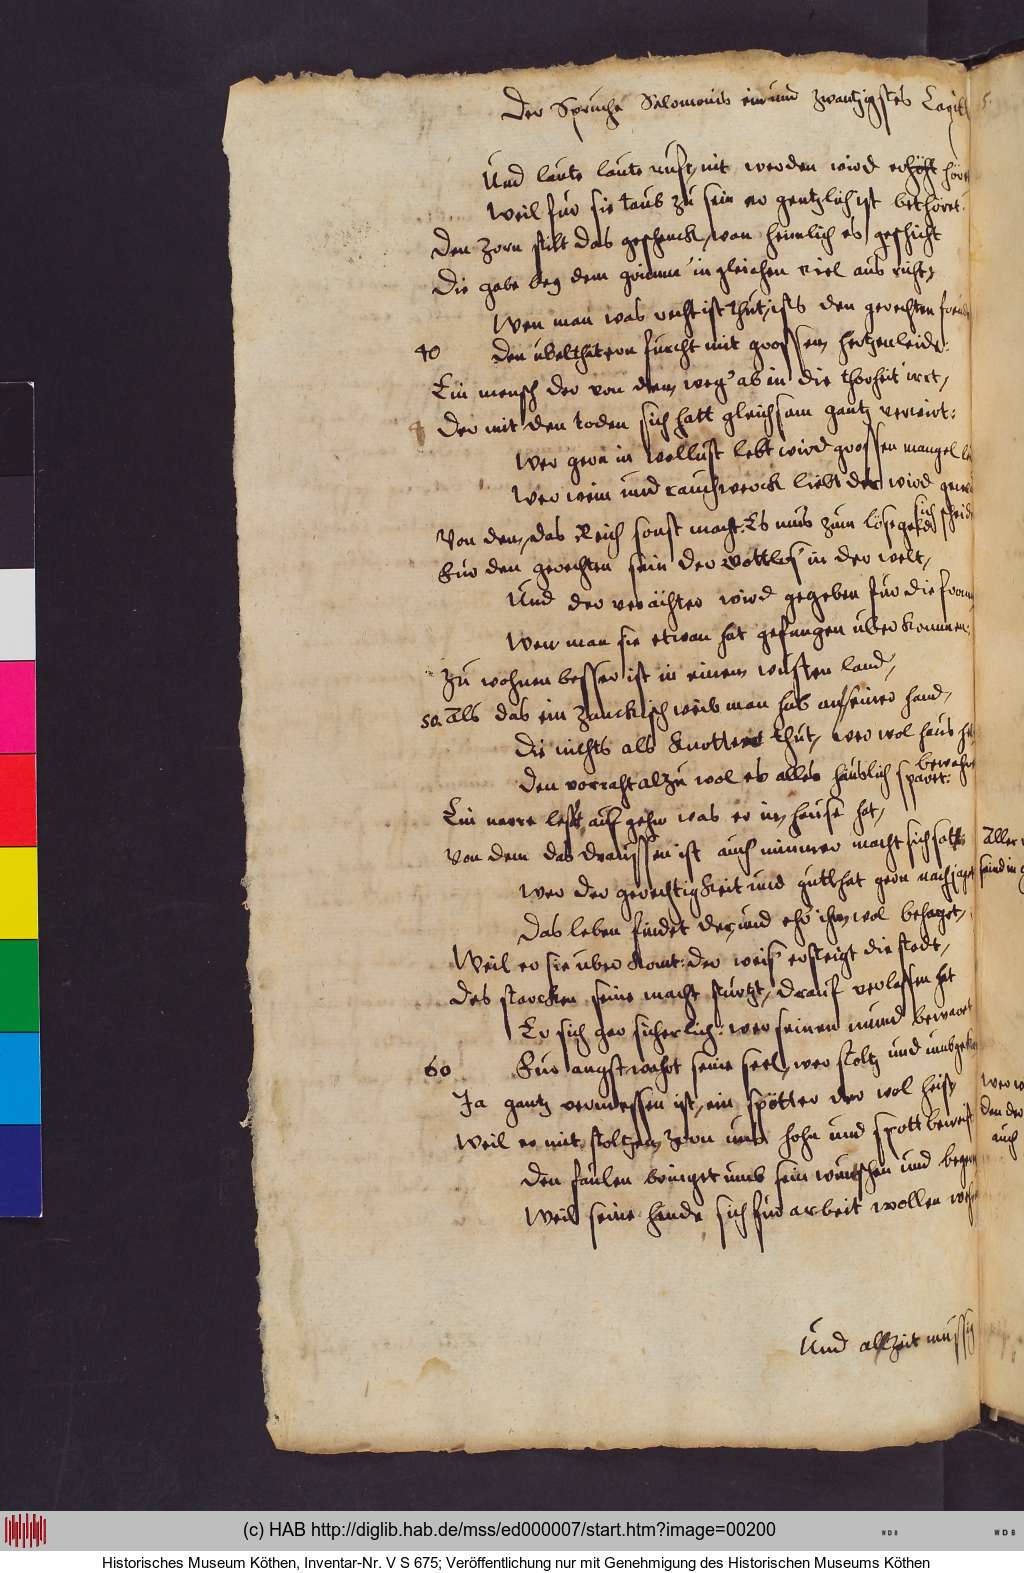 Der Sprüche Salomonis ein und zwantzigstes Capitl
Und laute laute ruft, nit werden wird erhöht
Weil für sie taub zu sein er gentzlich ist bethöret:
Den zorn stilt das geschenck, wan heimlich es geschicht
Die gabe beÿ dem grimme in gleichen viel aus richt,
Wen man was recht ist thut, ists den gerechten freude
40 Den übelthätern furcht mit grossem hertzenleide:
Ein mensch der von dem weg' ab in die thorheit irt,
Der mit den toden sich hatt gleichsam gantz verwirt:
Wer gern in wollust lebt wird grossen mangel
Wer wein und rauchwerck liebt der wird
sich scheid
Von dem, das Reich sonst macht: Es mus zum lösegeld
Für den gerechten sein der Gottlos' in der welt,
Und der verächter wird gegeben für die from
Wen man sie etwan hat gefangen überkommen:
Zu wohnen besser ist in einem wüsten land,
50. Als das ein zanckisch weib man hab an seiner hand,
Die nichts als knotteret thut, wer wol haus
bewahr
Den vorraht alzu wol es alles häuslich sparet:
Ein narre lest auf gehn was er im hause hat,
Von dem das draussen ist auch nimmer macht sich satt
Wer der gerechtigkeit und gutthat gern nachjaget
Das leben findet der, und ehr' ihm wol behaget,
Weil er sie uberkomt: der weis' ersteigt die stadt,
Des starcken seine macht stürtzt, drauf verlassen hat
Er sich gar sicherlich: wer seinen mund bewaret
60 Für angst, wahrt seine seel, wer stoltz und
Ja gantz vermessen ist, ein spötter der wol heist
Weil er mit stoltzem zorn und hohn und spott beweist
Den faulen bringet umb sein wüntschen und
Weil seine hende sich für arbeit wollen
Und allzeit müssig
Aller
seind in
wer
den der
auch
(c) HAB http://diglib.hab.de/mss/ed000007/start.htm?image=00200
Historisches Museum Köthen, Inventar-Nr. V S 675; Veröffentlichung nur mit Genehmigung des Historischen Museums Köthen